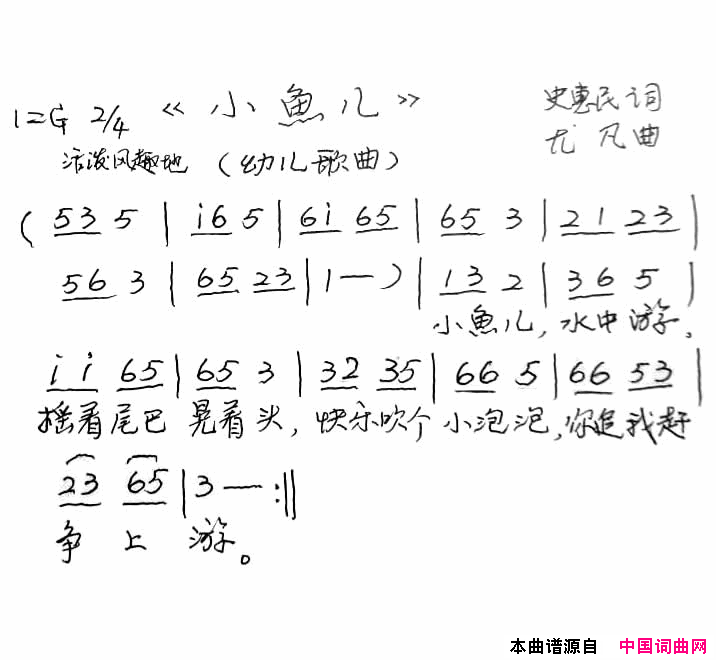 1=G 2/4 《小鱼儿》 史惠民词
活泼风趣地 (幼儿歌曲) 尤凡曲
( 53 5 | i6 5 | 6i 65 | 65 3 | 21 23 |
56 3 | 65 23 | 1 — ) | 13 2 | 36 5 |
小鱼儿,水中游,
i i 65 | 65 3 | 32 35 | 66 5 | 66 53 |
摇着尾巴 晃着头,快乐吹个 小泡泡,你追我赶
23 65 | 3 — :‖
争 上 游。
本曲谱源自 中国词曲网